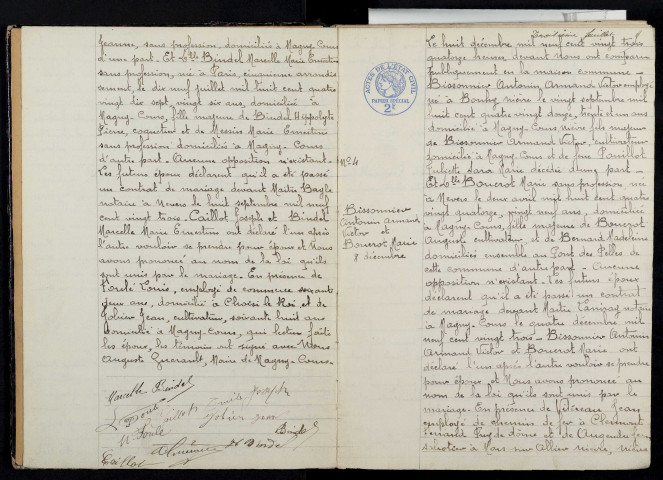 Jeanne, sans profession, domiciliés à Magny-Cours
d'une part. Et Dlle Bindel Marcelle Marie Ernestine
sans profession, née à Paris, cinquième arrondis
sement, le dix neuf juillet mil huit cent quatre
vingt dix sept, vingt six ans, domiciliée à
Magny-Cours, fille majeure de Bindel Hippolyte
Pierre, coquetier et de Messin Marie Ernestine
sans profession domiciliés à Magny-Cours
d'autre part. Aucune opposition n'existant.
Les futurs époux déclarent qu'il a été passé
un contrat de mariage devant Maître Bagle
notaire à Nevers le huit septembre mil neuf
cent vingt trois. Caillot Joseph et Bindel
Marcelle Marie Ernestine ont déclaré l'un après
l'autre vouloir se prendre pour époux et Nous
avons prononcé au nom de la loi qu'ils
sont unis par le mariage. En présence de
Louis, employé de commerce soixante
deux ans, domicilié à Choisi le Roi et de
Jean, cultivateur, soixante huit ans
domicilié à Magny-Cours, qui lecture faite
les époux, les témoins ont signé avec Nous
Auguste, Maire de Magny-Cours
Marcelle Bindel
Bindel
Caillot
ACTES DE L'ÉTAT CIVIL
PAPIER SPÉCIAL
2F
N° 4
Bissonnier
Antonin Armand
Victor et
Bouerot Marie
8 décembre
feuillet
Le huit décembre mil neuf cent vingt trois
quatorze heures, devant Nous ont comparu
publiquement en la maison commune
Bissonnier Antonin Armand Victor employé
né à Nièvre le vingt septembre mil
huit cent quatre vingt douze, trente et un ans
domicilié à Magny-Cours Nièvre fils majeur
de Bissonnier Armand Victor, cultivateur
domicilié à Magny-Cours et de feue
Juliette Marie décédée d'une part
Et Dlle Bouerot Marie sans profession née
à Nevers le deux avril mil huit cent quatre
vingt quatorze, vingt neuf ans, domiciliée
à Magny-Cours, fille majeure de Bouerot
August cultivateur et de Bernard Madeleine
domiciliés ensemble au Pont des Pelles de
cette commune d'autre part. Aucune
opposition n'existant. Les futurs époux
déclarent qu'il a été passé un contrat
de mariage devant Maître notaire
à Magny-Cours le quatre décembre mil
neuf cent vingt trois. Bissonnier Antonin
Armand Victor et Bouerot Marie ont
déclaré l'un après l'autre vouloir se prendre
pour époux et Nous avons prononcé au
nom de la loi qu'ils sont unis par le
mariage. En présence de Jean
employé de chemin de fer à Clermont
Ferrand Puy de dôme et de
à Mars sur Allier nièvre